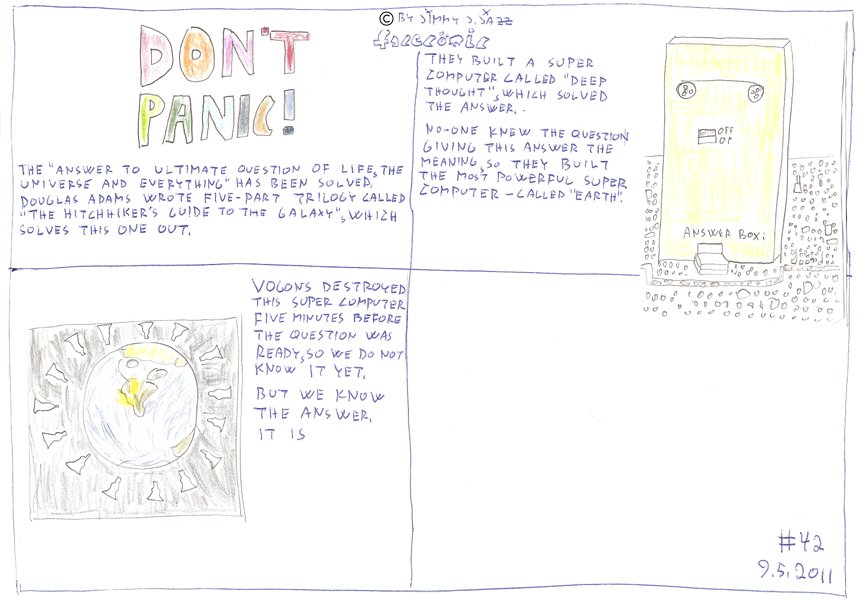 © BY JIMMY J. JAZZ
fineeronic
DON'T
PANIC!
THE "ANSWER TO ULTIMATE QUESTION OF LIFE, THE
UNIVERSE AND EVERYTHING" HAS BEEN SOLVED.
DOUGLAS ADAMS WROTE FIVE-PART TRILOGY CALLED
"THE HITCHHIKER'S GUIDE TO THE GALAXY", WHICH
SOLVES THIS ONE OUT.
THEY BUILT A SUPER
COMPUTER CALLED "DEEP
THOUGHT", WHICH SOLVED
THE ANSWER..
NO-ONE KNEW THE QUESTION
GIVING THIS ANSWER THE
MEANING, SO THEY BUILT
THE MOST POWERFUL SUPER
COMPUTER - CALLED "EARTH".
OFF
OP
ANSWER BOX:
VOGONS DESTROYED
THIS SUPER COMPUTER
FIVE MINUTES BEFORE
THE QUESTION WAS
READY, SO WE DO NOT
KNOW IT YET.
BUT WE KNOW
THE ANSWER.
IT IS
#42
9.5.2011